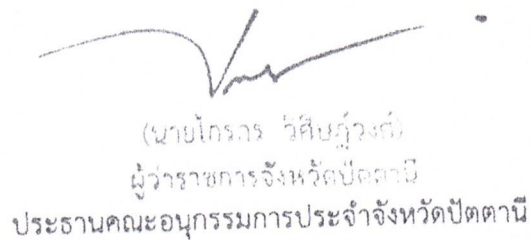 (นายไกรศร วิศิษฎ์วงศ์)
ผู้ว่าราชการจังหวัดปัตตานี
ประธานคณะอนุกรรมการประจำจังหวัดปัตตานี